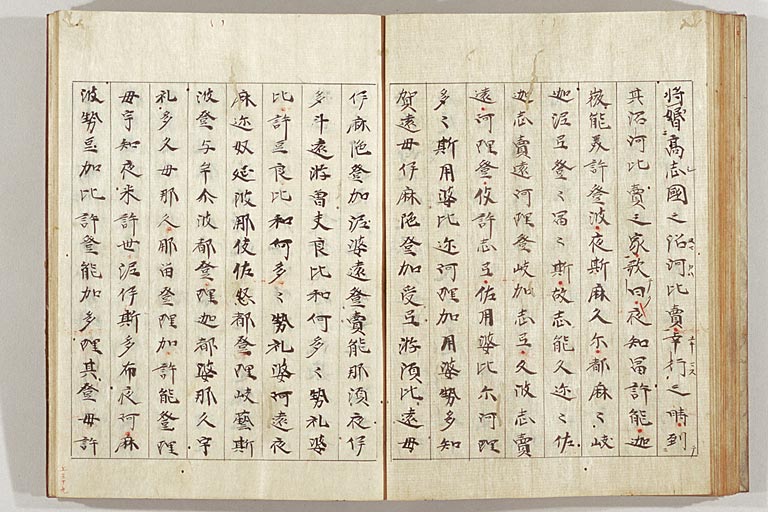 将婚高志國之沼河比賣幸行之時到
其沼河比賣之家歌曰夜知冨許能迦
微能美許登波夜斯麻久尓都麻々岐
迦泥弖登々冨々斯故志能久迩々佐
迦志賣遠阿理登岐加志弖久波志賣
遠阿理登伎許志弖佐用婆比尓阿理
多々斯用婆比迩阿理加用婆勢多知
賀遠毋伊麻陁登加受弖游須比遠毋
伊麻陁登加泥婆遠登賣能那須夜伊
多斗遠游曽夫良比和何多々勢礼婆
比許豆良比和何多々勢礼婆阿遠夜
麻迩奴延波那伎佐怒都登理岐藝斯
波登与牟尓波都登理迦都婆那久宇
礼多久毋那久那留登理加許能登理
毋宇知夜米許世泥伊斯多布夜阿麻
波勢豆加比許登能加多理其登毋許